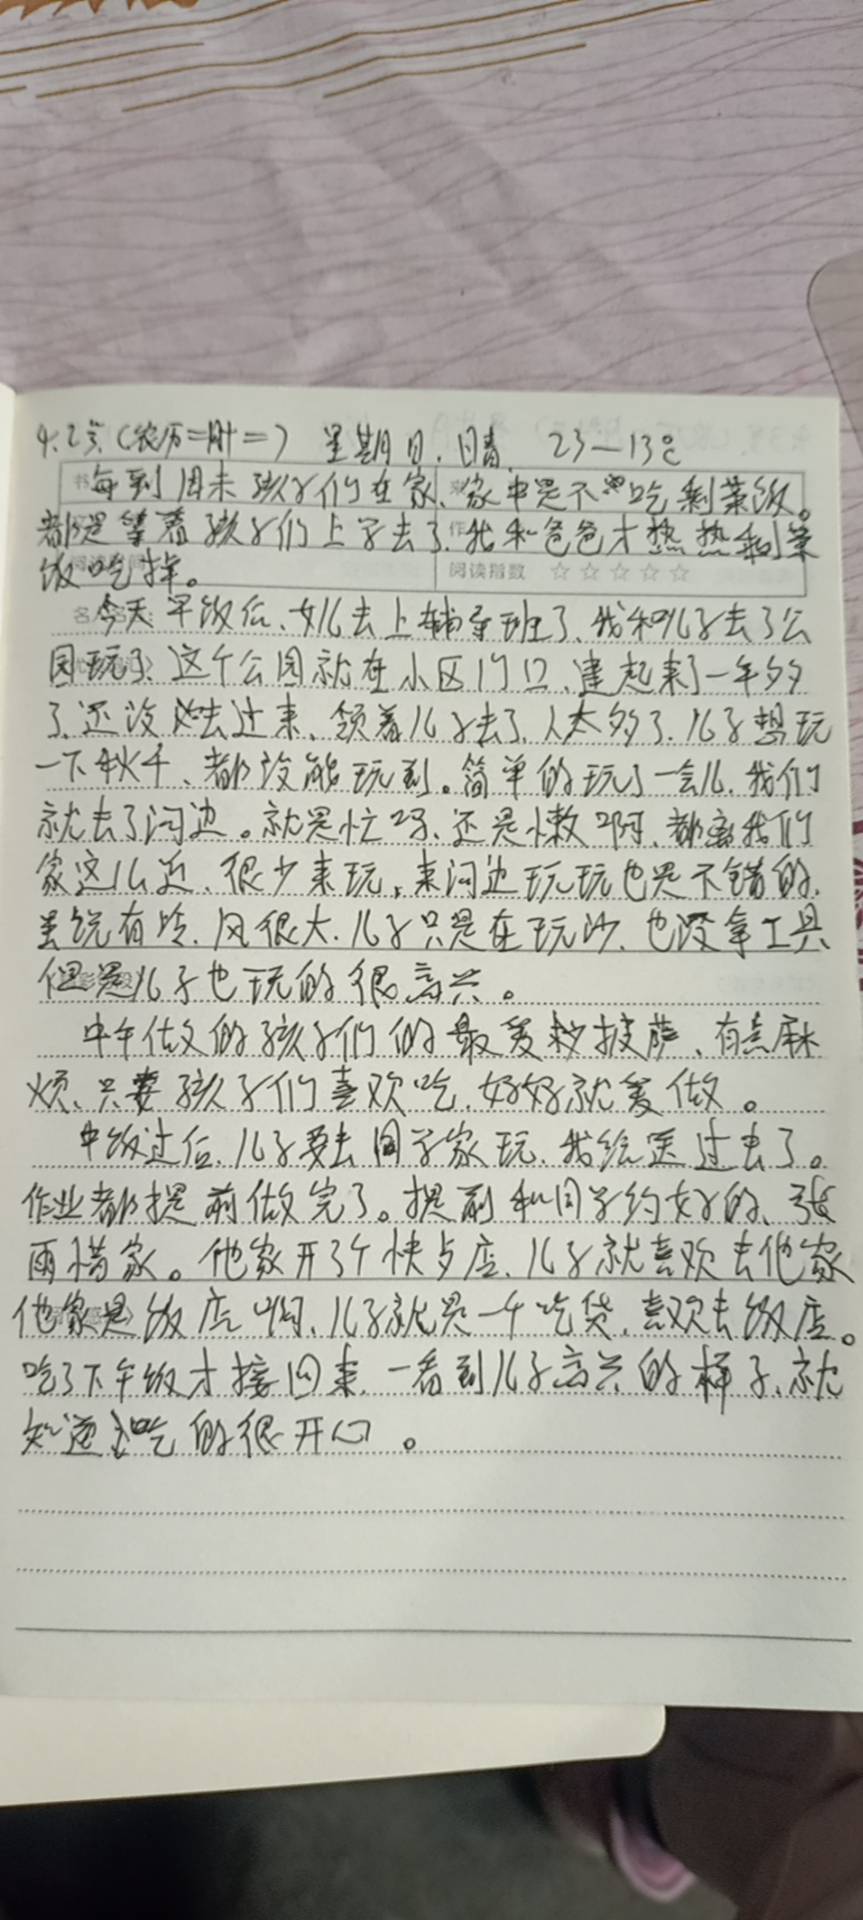 (农历二月廿二) 星期日. 日晴. 23—13℃
每到周末孩子们在家、家中是不吃剩菜饭。
都是等着孩子们上学去了、我和爸爸才热热剩菜
饭吃掉。
阅读指数 ☆☆☆☆☆
今天早饭后、女儿去上辅导班了、我和儿子去了公
园玩了、这个公园就在小区门口、建起来了一年多
了、还没去过来、领着儿子去了、人太多了、儿子想玩
一下秋千、都没能玩到。简单的玩了一会儿、我们
就去了河边。就是忙吗、还是懒啊、都离我们
家这么近、很少来玩,来河边玩玩也是不错的,
虽说有冷、风很大、儿子只是在玩沙、也没拿工具
但是儿子也玩的很高兴。
中午做的孩子们的最爱披萨、有点麻
烦、只要孩子们喜欢吃、好好就爱做。
中饭过后、儿子要去同学家玩、我给送过去了。
作业都提前做完了。提前和同学约好的、张
雨惜家。他家开了个快店、儿子就喜欢去他家
他家是饭店啊、儿子就是一个吃货、喜欢去饭店。
吃了下午饭才接回来、一看到儿子高兴的样子、就
知道吃的很开心。